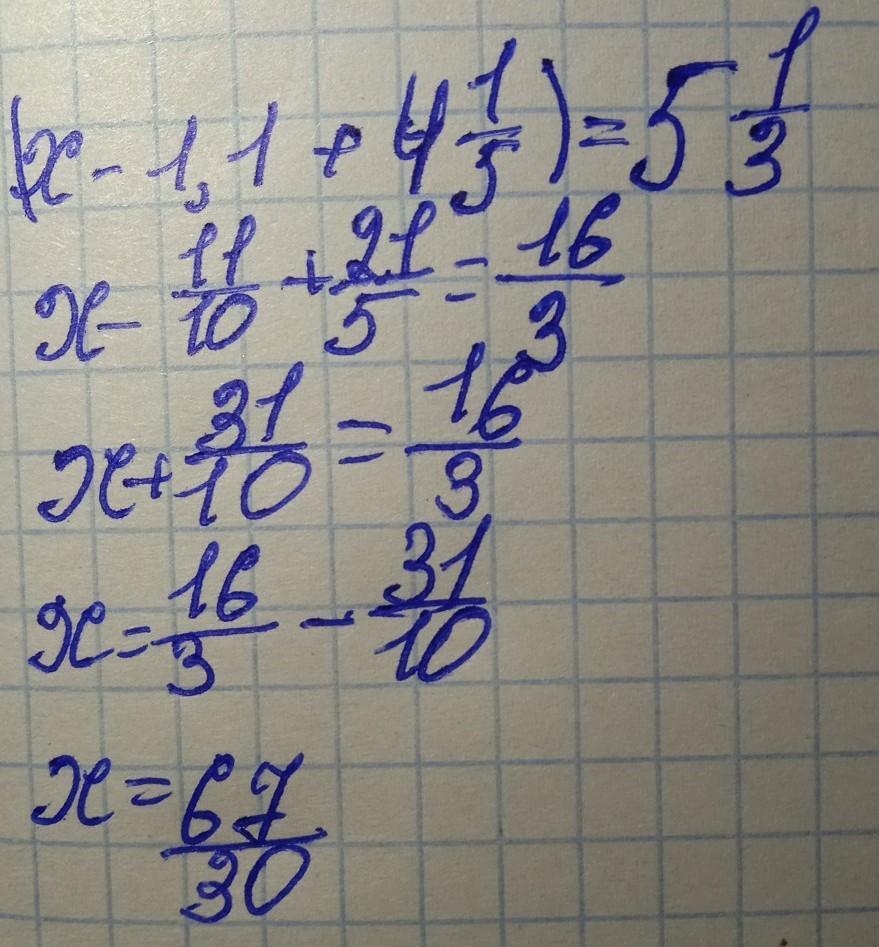 (x - 1,1 + 4 1/5) = 5 1/3
x - 11/10 + 21/5 = 16/3
x + 31/10 = 16/3
x = 16/3 - 31/10
x = 67/30